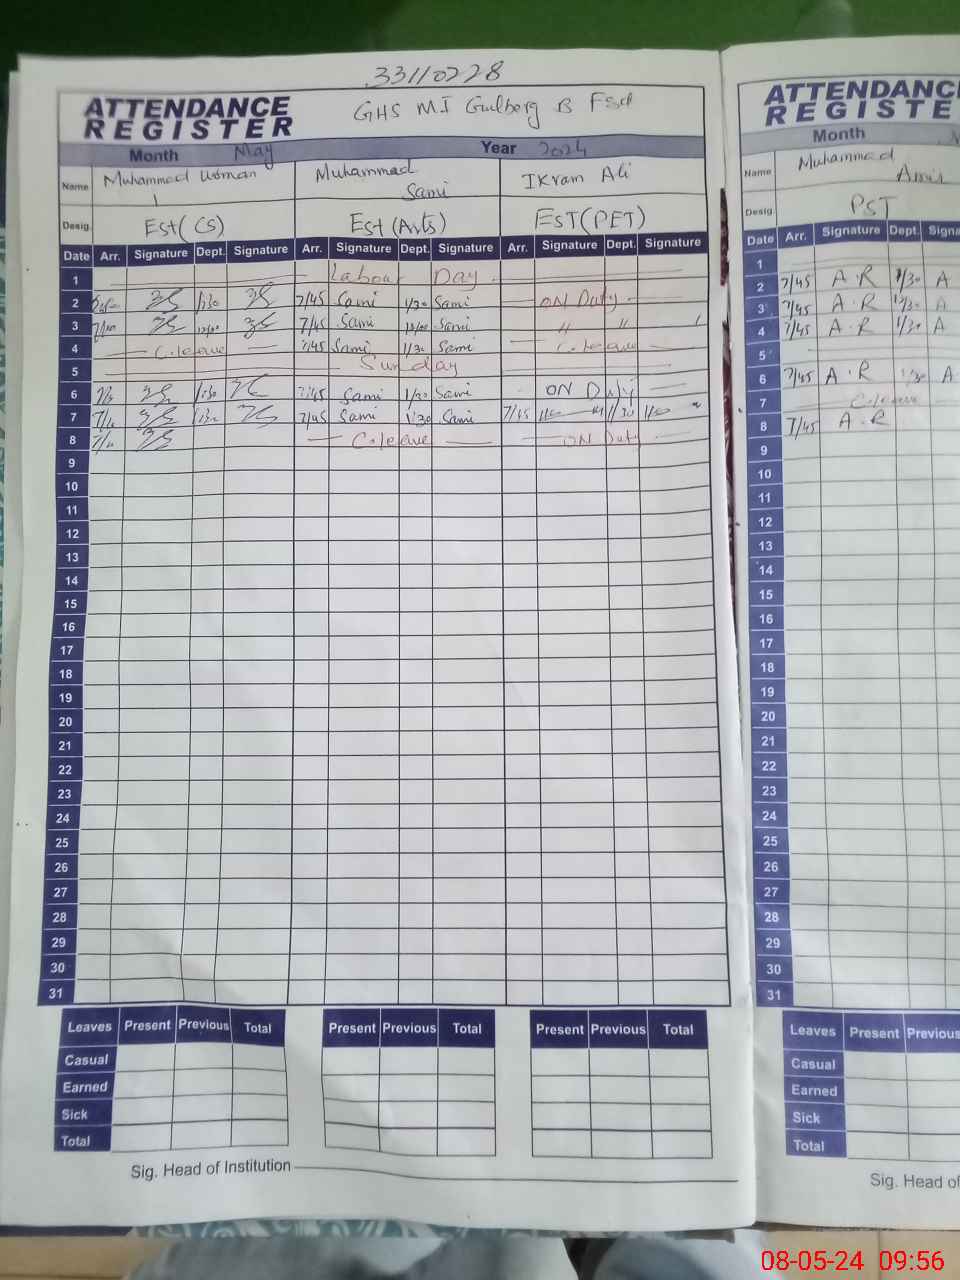 33110228
ATTENDANCE REGISTER
GHS MJ Gulberg B Fsd
Month May Year 2024
Name Muhammad Usman Muhammad Sami IKram Ali
Desig. Est(CS) Est(Arts) EST(PET)
Date Arr. Signature Dept. Signature Arr. Signature Dept. Signature Arr. Signature Dept. Signature
1 Labour Day
2 1/30 7/45 Sami 1/30 Sami ON Duty
3 7/45 Sami Sami " "
4 C.leave 7/45 Sami 1/30 Sami C.leave
5 Sunday
6 1/30 7/45 Sami 1/30 Sami ON Duty
7 7/45 Sami 1/30 Sami 7/45
8 C.leave ON Duty
9
10
11
12
13
14
15
16
17
18
19
20
21
22
23
24
25
26
27
28
29
30
31
Leaves Present Previous Total Present Previous Total Present Previous Total
Casual
Earned
Sick
Total
Sig. Head of Institution
ATTENDANC
REGISTE
Month
Name Muhammad Amir
Desig. PST
Date Arr. Signature Dept. Signa
1
2 7/45 A.R 1/30 A
3 7/45 A.R A
4 7/45 A.R 1/30 A
5
6 7/45 A.R 1/30 A
7 C.leave
8 7/45 A.R
9
10
11
12
13
14
15
16
17
18
19
20
21
22
23
24
25
26
27
28
29
30
31
Leaves Present Previous
Casual
Earned
Sick
Total
Sig. Head of
08-05-24 09:56